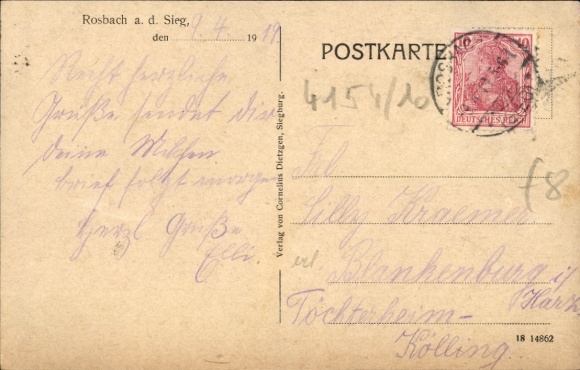 Rosbach a. d. Sieg, 9. 4.
den 19 19
Recht herzliche
Grüße sendet dir
deine
brief folgt morgen
Herzl Grüße
Elli.
Verlag von Cornelius Dietzgen, Siegburg.
POSTKARTE
4154/10
10
DEUTSCHES REICH
f8
Frl
Cilly Kraemer
Blankenburg i/
Harz
Töchterheim-
Kölling.
18 14862